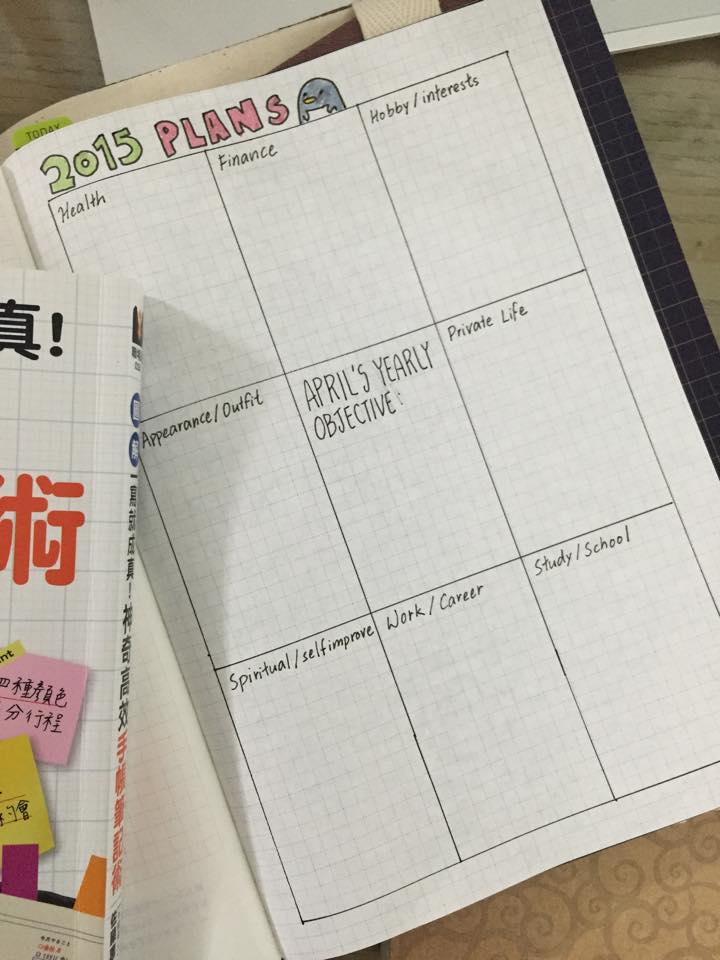 TODAY
2015 PLANS
Health
Finance
Hobby / interests
Appearance / Outfit
APRIL'S YEARLY
OBJECTIVE:
Private Life
Spiritual / self improve
Work / Career
Study / School
真!
術
四種顏色
分行程
約會
夢想成真!神奇高效手帳筆記術